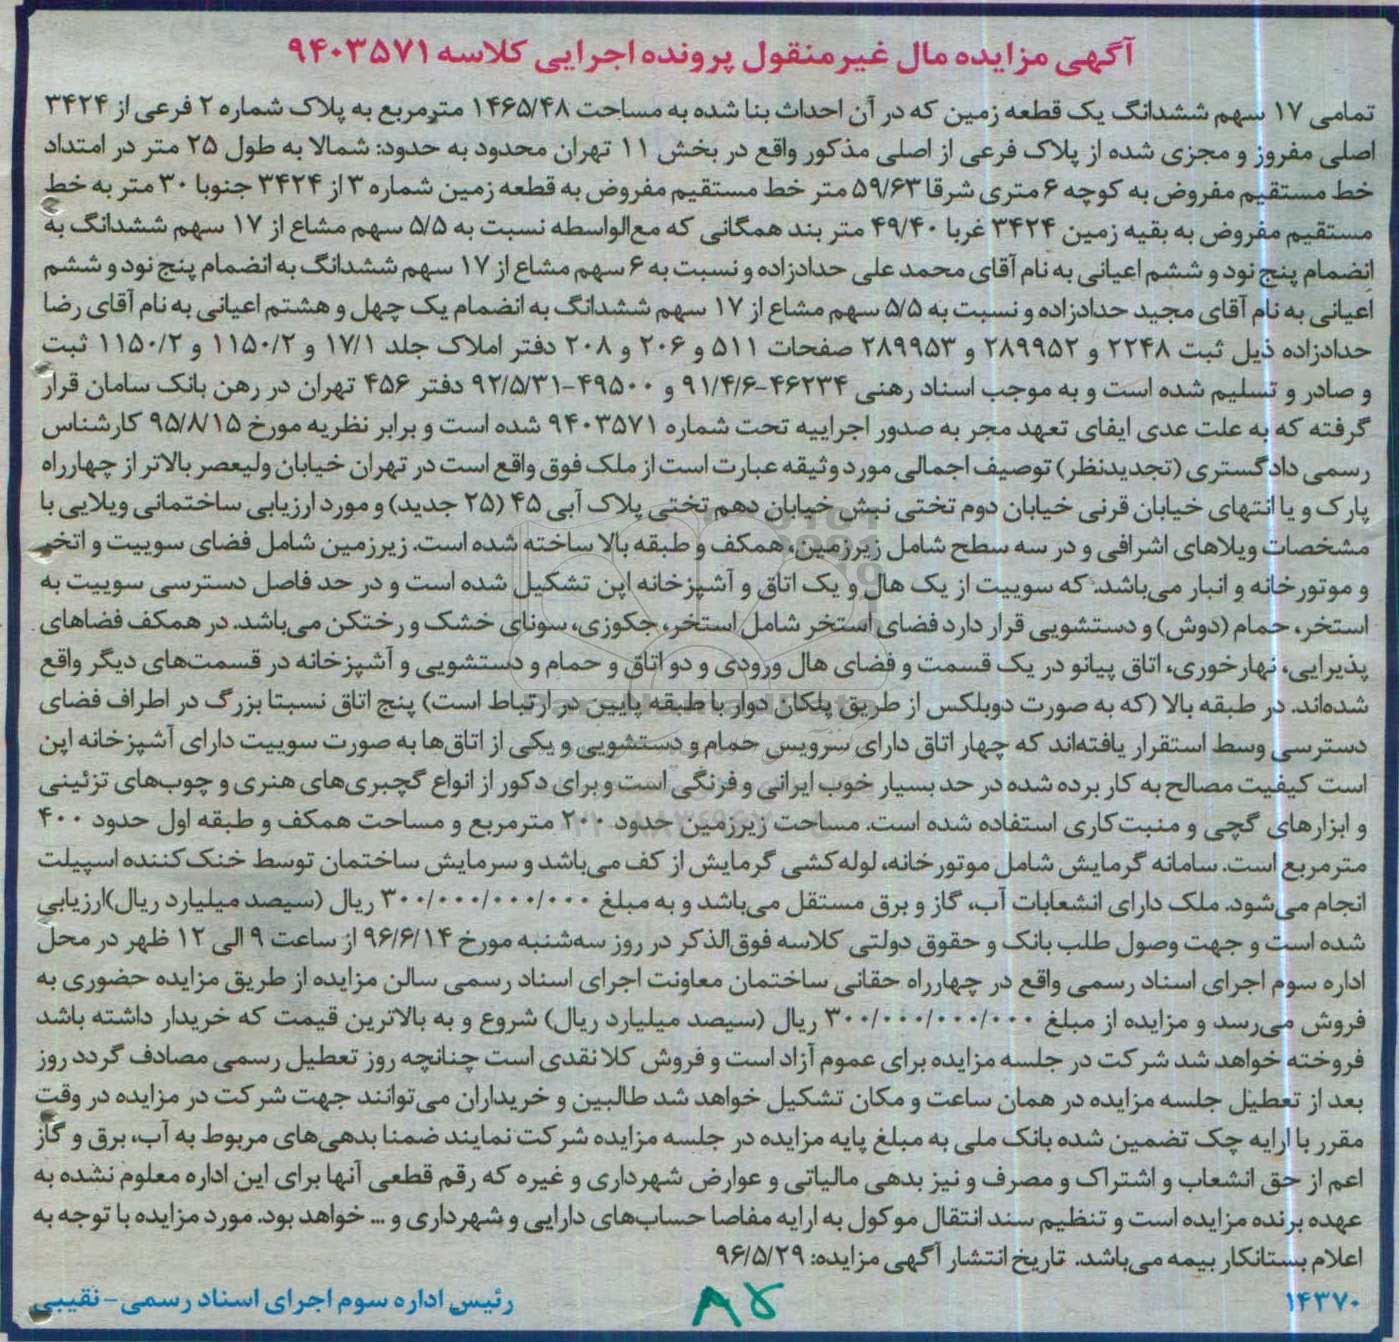 آگهی مزایده مال غیرمنقول پرونده اجرایی کلاسه ۹۴۰۳۵۷۱
تمامی ۱۷ سهم ششدانگ یک قطعه زمین که در آن احداث بنا شده به مساحت ۱۴۶۵/۴۸ مترمربع به پلاک شماره ۲ فرعی از ۳۴۲۴
اصلی مفروز و مجزی شده از پلاک فرعی از اصلی مذکور واقع در بخش ۱۱ تهران محدود به حدود: شمالا به طول ۲۵ متر در امتداد
خط مستقیم مفروض به کوچه ۶ متری شرقا ۵۹/۶۳ متر خط مستقیم مفروض به قطعه زمین شماره ۳ از ۳۴۲۴ جنوبا ۳۰ متر به خط
مستقیم مفروض به بقیه زمین ۳۴۲۴ غربا ۴۹/۴۰ متر بند همگانی که مع‌الواسطه نسبت به ۵/۵ سهم مشاع از ۱۷ سهم ششدانگ به
انضمام پنج نود و ششم اعیانی به نام آقای محمد علی حدادزاده و نسبت به ۶ سهم مشاع از ۱۷ سهم ششدانگ به انضمام پنج نود و ششم
اعیانی به نام آقای مجید حدادزاده و نسبت به ۵/۵ سهم مشاع از ۱۷ سهم ششدانگ به انضمام یک چهل و هشتم اعیانی به نام آقای رضا
حدادزاده ذیل ثبت ۲۲۴۸ و ۲۸۹۹۵۲ و ۲۸۹۹۵۳ صفحات ۵۱۱ و ۲۰۶ و ۲۰۸ دفتر املاک جلد ۱۷/۱ و ۱۱۵۰/۲ و ۱۱۵۰/۲ ثبت
و صادر و تسلیم شده است و به موجب اسناد رهنی ۴۶۲۳۴-۹۱/۴/۶ و ۴۹۵۰۰-۹۲/۵/۳۱ دفتر ۴۵۶ تهران در رهن بانک سامان قرار
گرفته که به علت عدی ایفای تعهد مجر به صدور اجراییه تحت شماره ۹۴۰۳۵۷۱ شده است و برابر نظریه مورخ ۹۵/۸/۱۵ کارشناس
رسمی دادگستری (تجدیدنظر) توصیف اجمالی مورد وثیقه عبارت است از ملک فوق واقع است در تهران خیابان ولیعصر بالاتر از چهارراه
پارک و یا انتهای خیابان قرنی خیابان دوم تختی نبش خیابان دهم تختی پلاک آبی ۴۵ (۲۵ جدید) و مورد ارزیابی ساختمانی ویلایی با
مشخصات ویلاهای اشرافی و در سه سطح شامل زیرزمین، همکف و طبقه بالا ساخته شده است. زیرزمین شامل فضای سوییت و اتخر
و موتورخانه و انبار می‌باشد. که سوییت از یک هال و یک اتاق و آشپزخانه اپن تشکیل شده است و در حد فاصل دسترسی سوییت به
استخر، حمام (دوش) و دستشویی قرار دارد فضای استخر شامل استخر، جکوزی، سونای خشک و رختکن می‌باشد. در همکف فضاهای
پذیرایی، نهارخوری، اتاق پیانو در یک قسمت و فضای هال ورودی و دو اتاق و حمام و دستشویی و آشپزخانه در قسمت‌های دیگر واقع
شده‌اند. در طبقه بالا (که به صورت دوبلکس از طریق پلکان دوار با طبقه پایین در ارتباط است) پنج اتاق نسبتا بزرگ در اطراف فضای
دسترسی وسط استقرار یافته‌اند که چهار اتاق دارای سرویس حمام و دستشویی و یکی از اتاق‌ها به صورت سوییت دارای آشپزخانه اپن
است کیفیت مصالح به کار برده شده در حد بسیار خوب ایرانی و فرنگی است و برای دکور از انواع گچبری‌های هنری و چوب‌های تزئینی
و ابزارهای گچی و منبت‌کاری استفاده شده است. مساحت زیرزمین حدود ۲۰۰ مترمربع و مساحت همکف و طبقه اول حدود ۴۰۰
مترمربع است. سامانه گرمایش شامل موتورخانه، لوله‌کشی گرمایش از کف می‌باشد و سرمایش ساختمان توسط خنک‌کننده اسپیلت
انجام می‌شود. ملک دارای انشعابات آب، گاز و برق مستقل می‌باشد و به مبلغ ۳۰۰/۰۰۰/۰۰۰/۰۰۰ ریال (سیصد میلیارد ریال)ارزیابی
شده است و جهت وصول طلب بانک و حقوق دولتی کلاسه فوق‌الذکر در روز سه‌شنبه مورخ ۹۶/۶/۱۴ از ساعت ۹ الی ۱۲ ظهر در محل
اداره سوم اجرای اسناد رسمی واقع در چهارراه حقانی ساختمان معاونت اجرای اسناد رسمی سالن مزایده از طریق مزایده حضوری به
فروش می‌رسد و مزایده از مبلغ ۳۰۰/۰۰۰/۰۰۰/۰۰۰ ریال (سیصد میلیارد ریال) شروع و به بالاترین قیمت که خریدار داشته باشد
فروخته خواهد شد شرکت در جلسه مزایده برای عموم آزاد است و فروش کلا نقدی است چنانچه روز تعطیل رسمی مصادف گردد روز
بعد از تعطیل جلسه مزایده در همان ساعت و مکان تشکیل خواهد شد طالبین و خریداران می‌توانند جهت شرکت در مزایده در وقت
مقرر با ارایه چک تضمین شده بانک ملی به مبلغ پایه مزایده در جلسه مزایده شرکت نمایند ضمنا بدهی‌های مربوط به آب، برق و گاز
اعم از حق انشعاب و اشتراک و مصرف و نیز بدهی مالیاتی و عوارض شهرداری و غیره که رقم قطعی آنها برای این اداره معلوم نشده به
عهده برنده مزایده است و تنظیم سند انتقال موکول به ارایه مفاصا حساب‌های دارایی و شهرداری و ... خواهد بود. مورد مزایده با توجه به
اعلام بستانکار بیمه می‌باشد. تاریخ انتشار آگهی مزایده: ۹۶/۵/۲۹
۱۴۳۷۰
رئیس اداره سوم اجرای اسناد رسمی-نقیبی